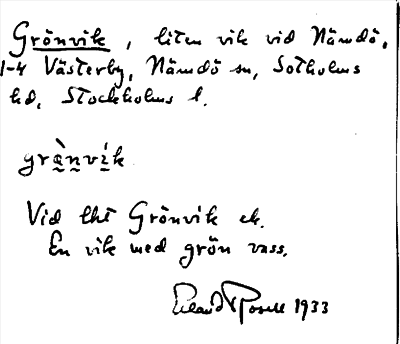 Grönvik, liten vik vid Nämdö,
1-4 Västerby, Nämdö sn, Sotholms
hd, Stockholms l.
grànvik
Vid lht Grönvik ek.
En vik med grön vass.
Erland Rosell 1933